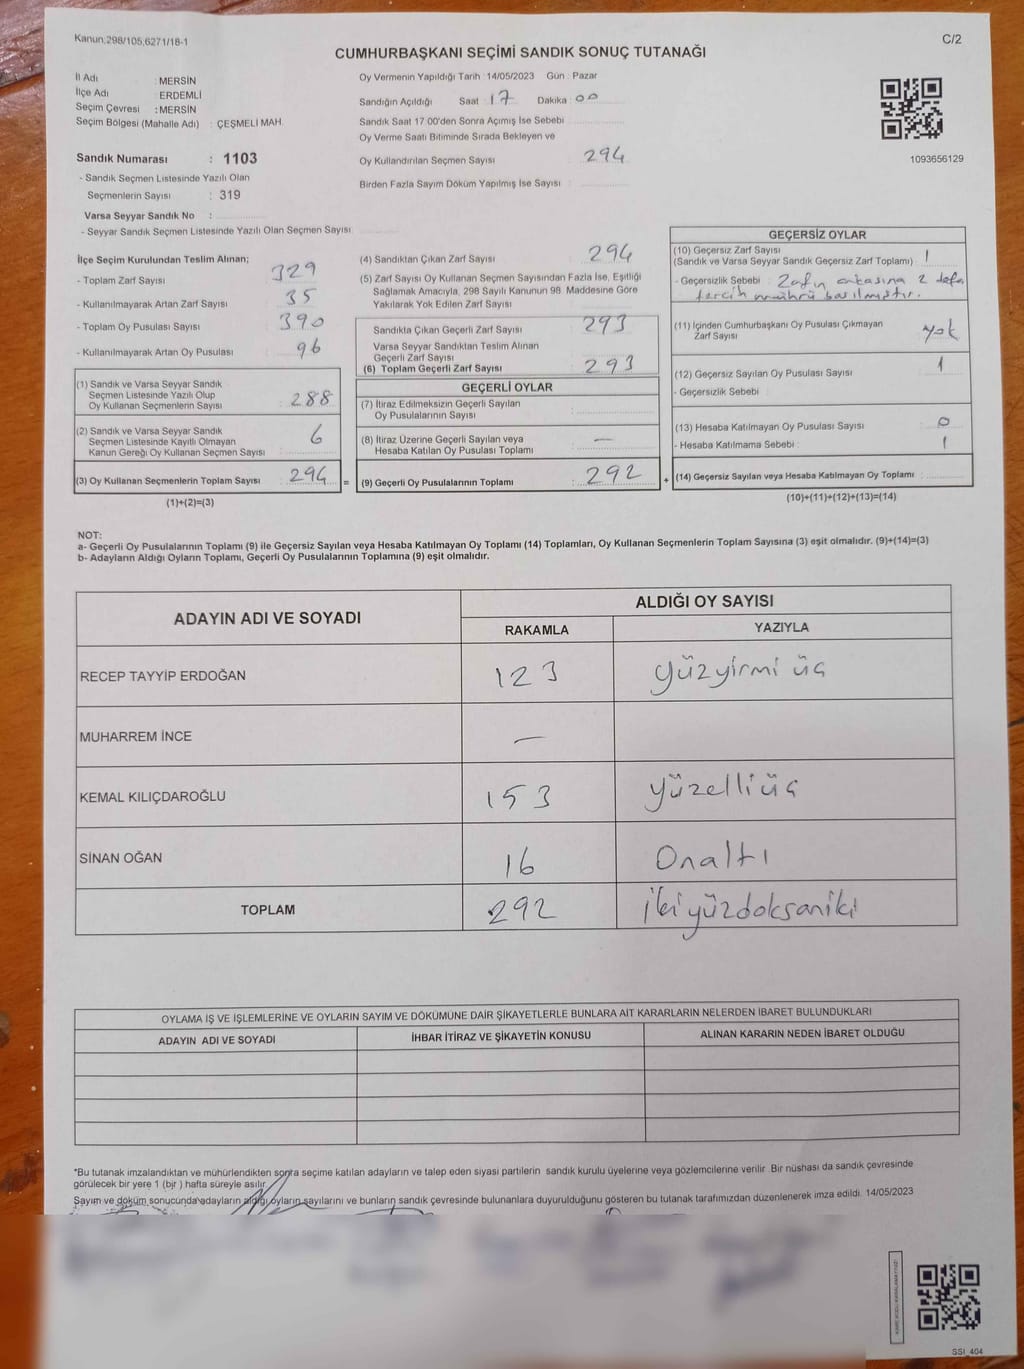 Kanun:298/105,6271/18-1
C/2
CUMHURBAŞKANI SEÇİMİ SANDIK SONUÇ TUTANAĞI
İl Adı : MERSİN
İlçe Adı : ERDEMLİ
Seçim Çevresi : MERSİN
Seçim Bölgesi (Mahalle Adı) : ÇEŞMELİ MAH.
Sandık Numarası : 1103
- Sandık Seçmen Listesinde Yazılı Olan
Seçmenlerin Sayısı : 319
Varsa Seyyar Sandık No :
- Seyyar Sandık Seçmen Listesinde Yazılı Olan Seçmen Sayısı
Oy Vermenin Yapıldığı Tarih : 14/05/2023 Gün : Pazar
Sandığın Açıldığı Saat 17 Dakika 00
Sandık Saat 17:00'den Sonra Açımış İse Sebebi
Oy Verme Saati Bitiminde Sırada Bekleyen ve
Oy Kullandırılan Seçmen Sayısı 294
Birden Fazla Sayım Döküm Yapılmış İse Sayısı :
1093656129
İlçe Seçim Kurulundan Teslim Alınan;
- Toplam Zarf Sayısı : 329
- Kullanılmayarak Artan Zarf Sayısı : 35
- Toplam Oy Pusulası Sayısı : 390
- Kullanılmayarak Artan Oy Pusulası : 96
(1) Sandık ve Varsa Seyyar Sandık
Seçmen Listesinde Yazılı Olup
Oy Kullanan Seçmenlerin Sayısı : 288
(2) Sandık ve Varsa Seyyar Sandık
Seçmen Listesinde Kayıtlı Olmayan
Kanun Gereği Oy Kullanan Seçmen Sayısı : 6
(3) Oy Kullanan Seçmenlerin Toplam Sayısı : 294 =
(1)+(2)=(3)
(4) Sandıktan Çıkan Zarf Sayısı 294
(5) Zarf Sayısı Oy Kullanan Seçmen Sayısından Fazla İse, Eşitliği
Sağlamak Amacıyla, 298 Sayılı Kanunun 98. Maddesine Göre
Yakılarak Yok Edilen Zarf Sayısı :
Sandıkta Çıkan Geçerli Zarf Sayısı 293
Varsa Seyyar Sandıktan Teslim Alınan
Geçerli Zarf Sayısı
(6) Toplam Geçerli Zarf Sayısı : 293
GEÇERLİ OYLAR
(7) İtiraz Edilmeksizin Geçerli Sayılan
Oy Pusulalarının Sayısı :
(8) İtiraz Üzerine Geçerli Sayılan veya
Hesaba Katılan Oy Pusulası Toplamı : —
(9) Geçerli Oy Pusulalarının Toplamı : 292 +
GEÇERSİZ OYLAR
(10) Geçersiz Zarf Sayısı
(Sandık ve Varsa Seyyar Sandık Geçersiz Zarf Toplamı) : 1
- Geçersizlik Sebebi : Zarfın arkasına 2 defa
tercih mührü basılmıştır.
(11) İçinden Cumhurbaşkanı Oy Pusulası Çıkmayan
Zarf Sayısı yok
(12) Geçersiz Sayılan Oy Pusulası Sayısı 1
- Geçersizlik Sebebi :
(13) Hesaba Katılmayan Oy Pusulası Sayısı 0
- Hesaba Katılmama Sebebi : 1
(14) Geçersiz Sayılan veya Hesaba Katılmayan Oy Toplamı :
(10)+(11)+(12)+(13)=(14)
NOT:
a- Geçerli Oy Pusulalarının Toplamı (9) ile Geçersiz Sayılan veya Hesaba Katılmayan Oy Toplamı (14) Toplamları, Oy Kullanan Seçmenlerin Toplam Sayısına (3) eşit olmalıdır. (9)+(14)=(3)
b- Adayların Aldığı Oyların Toplamı, Geçerli Oy Pusulalarının Toplamına (9) eşit olmalıdır.
ADAYIN ADI VE SOYADI
ALDIĞI OY SAYISI
RAKAMLA YAZIYLA
RECEP TAYYİP ERDOĞAN 123 yüzyirmi üç
MUHARREM İNCE —
KEMAL KILIÇDAROĞLU 153 yüzelliüç
SİNAN OĞAN 16 Onaltı
TOPLAM 292 ikiyüzdoksaniki
OYLAMA İŞ VE İŞLEMLERİNE VE OYLARIN SAYIM VE DÖKÜMÜNE DAİR ŞİKAYETLERLE BUNLARA AİT KARARLARIN NELERDEN İBARET BULUNDUKLARI
ADAYIN ADI VE SOYADI İHBAR İTİRAZ VE ŞİKAYETİN KONUSU ALINAN KARARIN NEDEN İBARET OLDUĞU
*Bu tutanak imzalandıktan ve mühürlendikten sonra seçime katılan adayların ve talep eden siyasi partilerin sandık kurulu üyelerine veya gözlemcilerine verilir. Bir nüshası da sandık çevresinde
görülecek bir yere 1 (bir) hafta süreyle asılır.
Sayım ve döküm sonucunda adayların aldığı oyların sayılarını ve bunların sandık çevresinde bulunanlara duyurulduğunu gösteren bu tutanak tarafımızdan düzenlenerek imza edildi. 14/05/2023
SSI_404